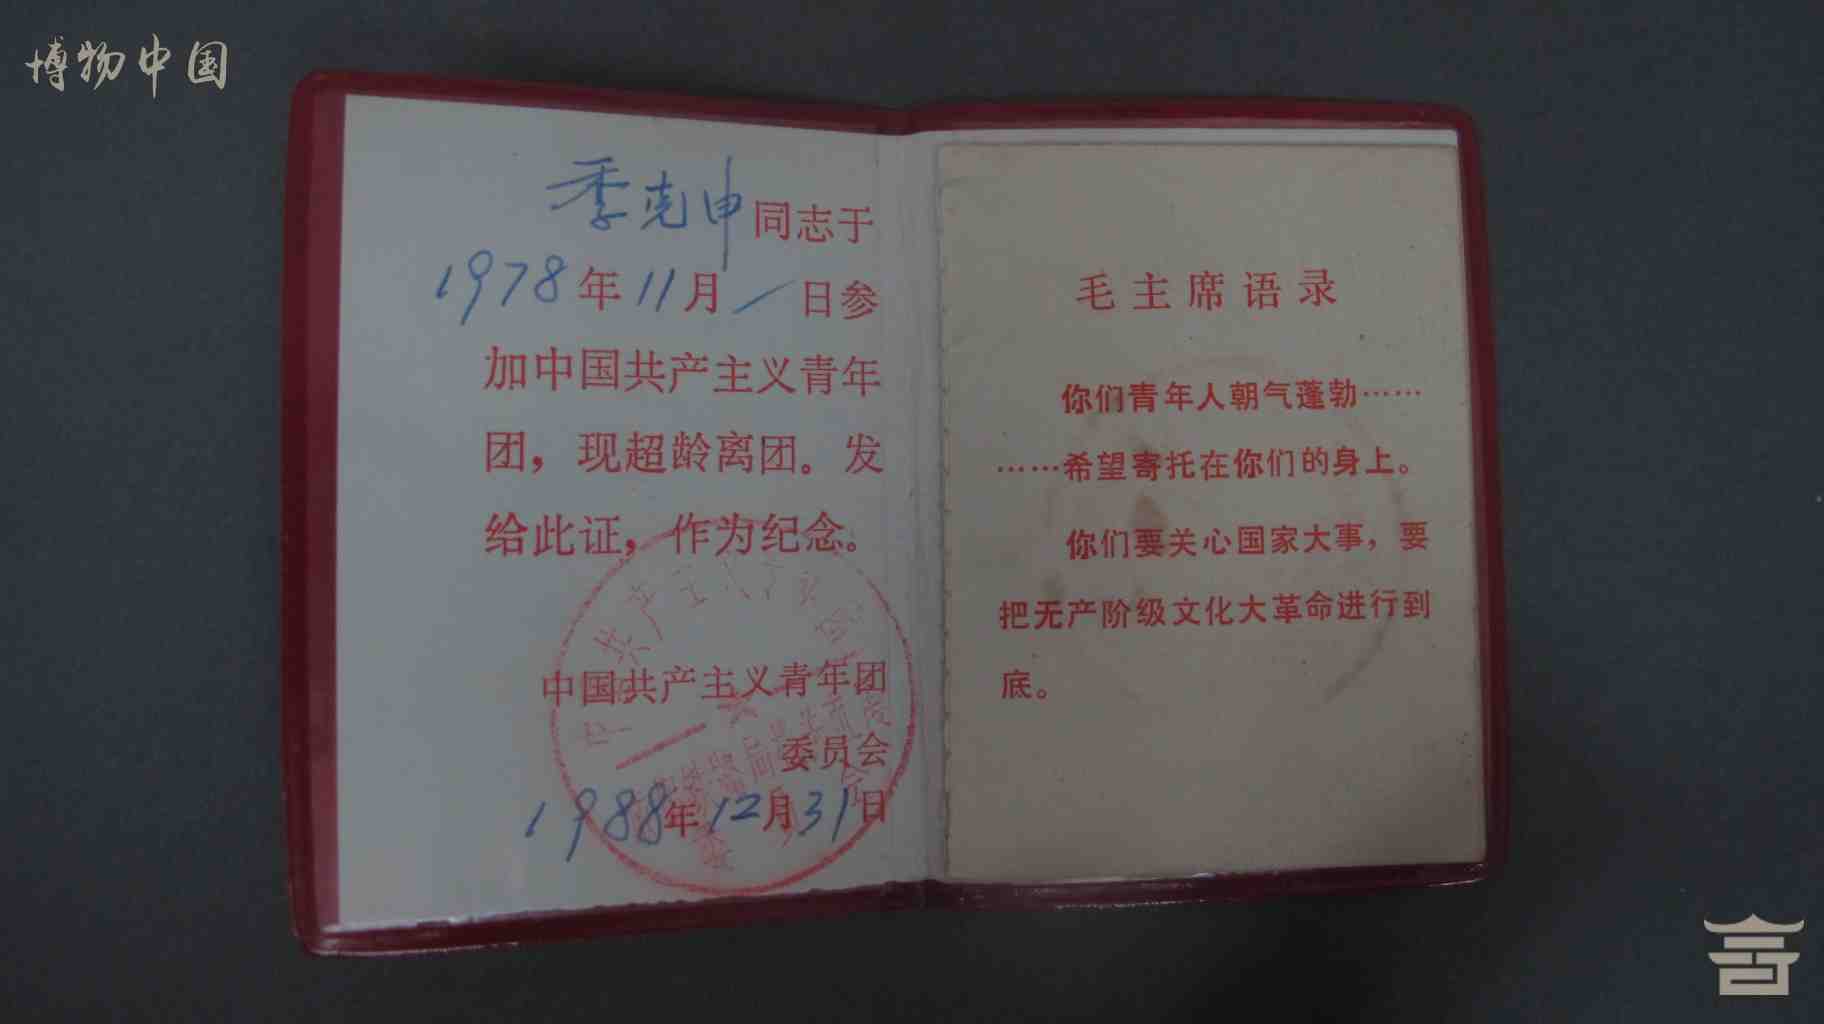 博物中国
季克申同志于
1978年11月一日参
加中国共产主义青年
团，现超龄离团。发
给此证，作为纪念。
中国共产主义青年团
委员会
1988年12月31日
毛主席语录
你们青年人朝气蓬勃……
……希望寄托在你们的身上。
你们要关心国家大事，要
把无产阶级文化大革命进行到
底。